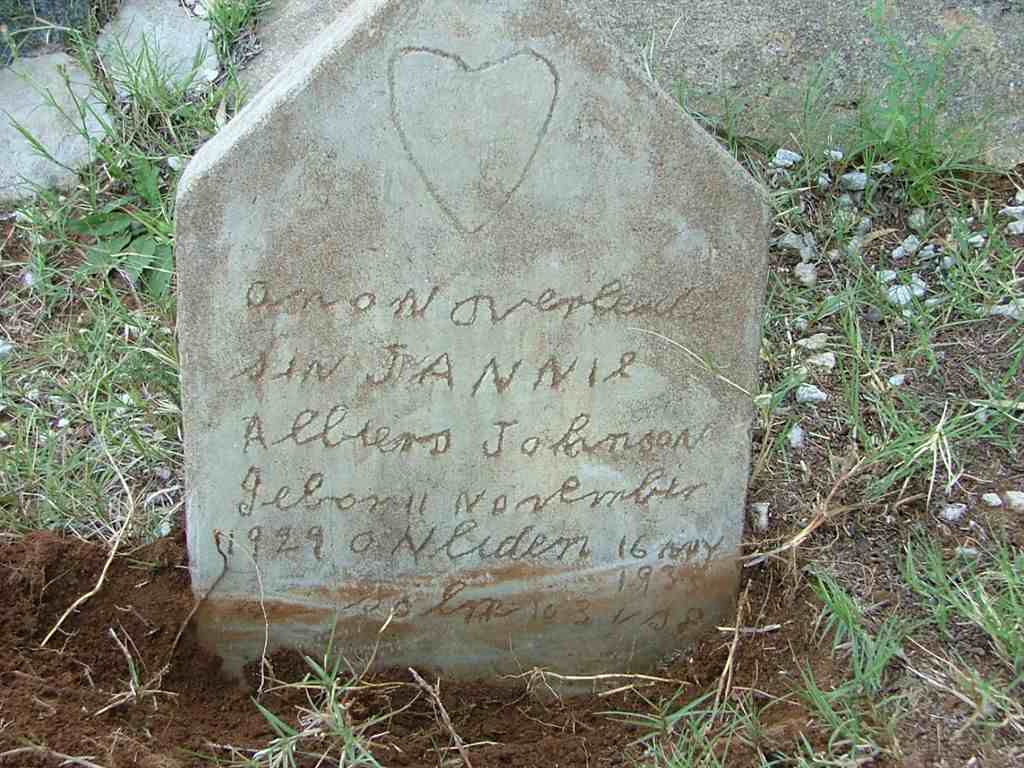 OnO N Overleede
SIN JANNIE
Albiers Johnson
Gebor 11 November
1929 ONliden 16 MAY
193
Solm 103 V 58